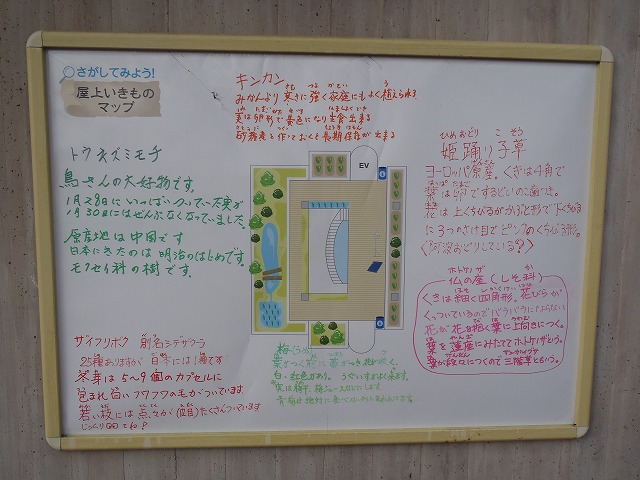 さがしてみよう!
屋上いきもの
マップ
キンカン
みかんより寒さに強く家庭にもよく植えられる
実は卵形で黄色になり生食出来る
砂糖煮と作っておくと長期保存が出来る
トウネズミモチ
鳥さんの大好物です。
1月28日にいっぱいついていた実が
1月30日にはぜんぶなくなっていました。
原産地は中国です
日本にきたのは明治のはじめです。
モクセイ科の樹です。
EV
ひめおどり こ そう
姫踊り子草
ヨーロッパ原産。くきは4角で
葉は卵形でするどいのこ歯つき。
花は上くちびるがかぶと形で下くちびる
に3つのさけ目でピンクのくちびる形。
〈阿波おどりしている?〉
ホトケノザ か
仏の座(しそ科)
くきは細く四角形。花びらが
くっついているのでバラバラにならない
花が花を抱く葉に上向きにつく。
葉を蓮座にみたててホトケノザという。
葉が段々につくので三階草ともいう。
ザイフリボク 別名シデザクラ
25種ありますが日本には1種です
冬芽は5〜9個のカプセルに
包まれ白いフワフワの毛がついています
若い枝には点々が(皮目)たくさんついています
じっくり見てね
梅(うめ)
葉がつく前に花がさき
白・紅色があり。うぐいすがよく来ます。
実は梅干、梅ジュースにします